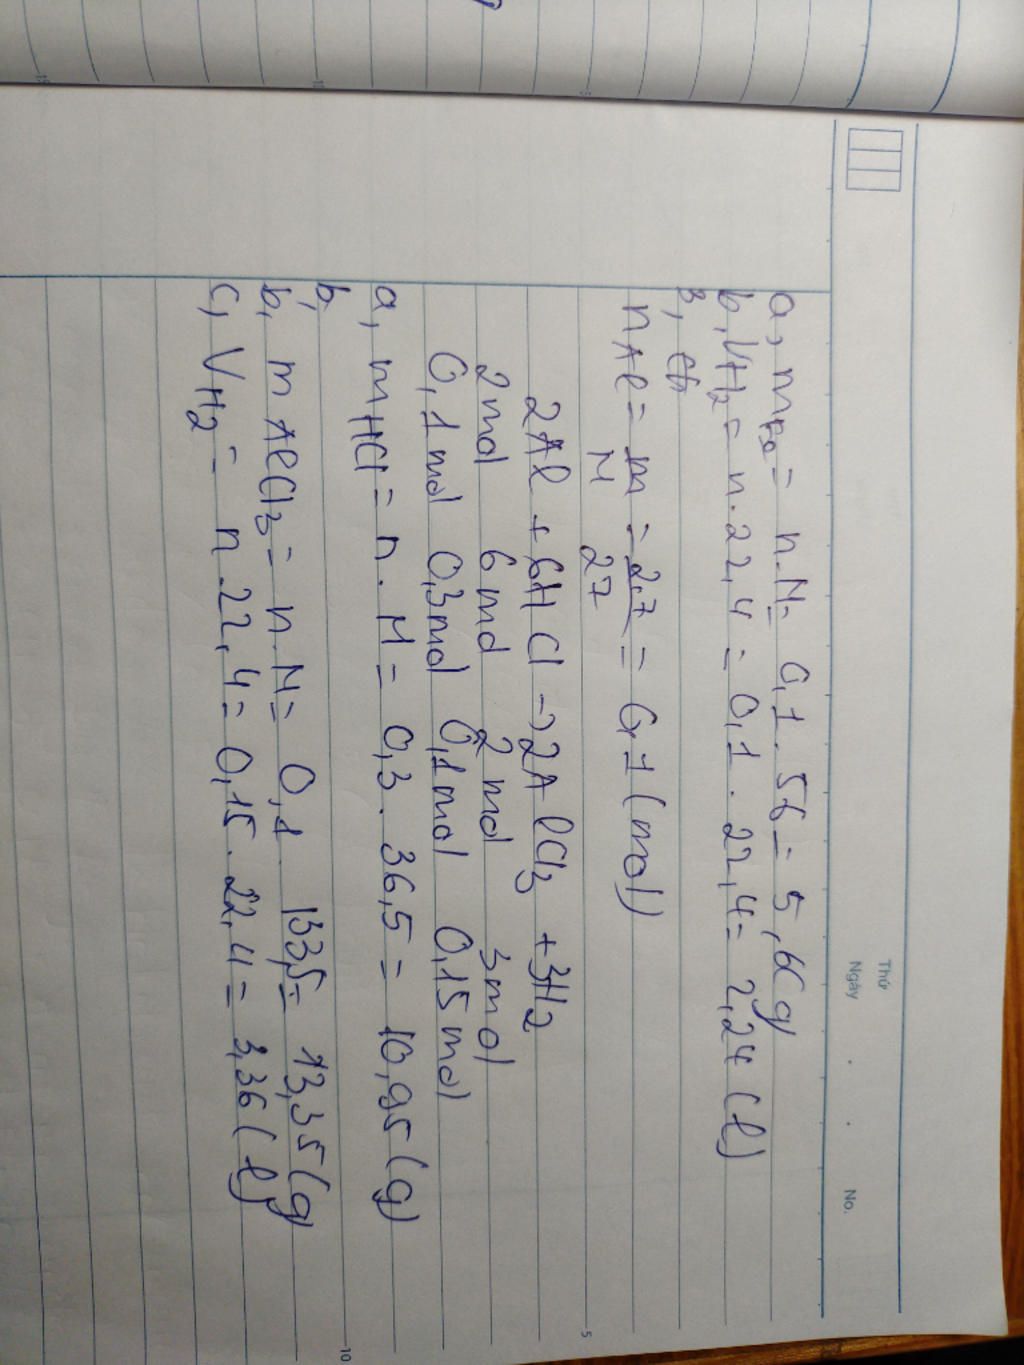 Thứ
Ngày . . No.
a, mFe = n.M = 0,1 . 56 = 5,6 g
b, VH2 = n.22,4 = 0,1 . 22,4 = 2,24 (l)
3,
nAl = m/M = 2,7/27 = 0,1 (mol)
2Al + 6HCl → 2AlCl3 + 3H2
2mol 6mol 2mol 3mol
0,1mol 0,3mol 0,1mol 0,15mol
a, mHCl = n.M = 0,3 . 36,5 = 10,95 (g)
b,
b, mAlCl3 = n.M = 0,1 . 133,5 = 13,35 (g
c, VH2 = n.22,4 = 0,15 . 22,4 = 3,36 (l)
5
10